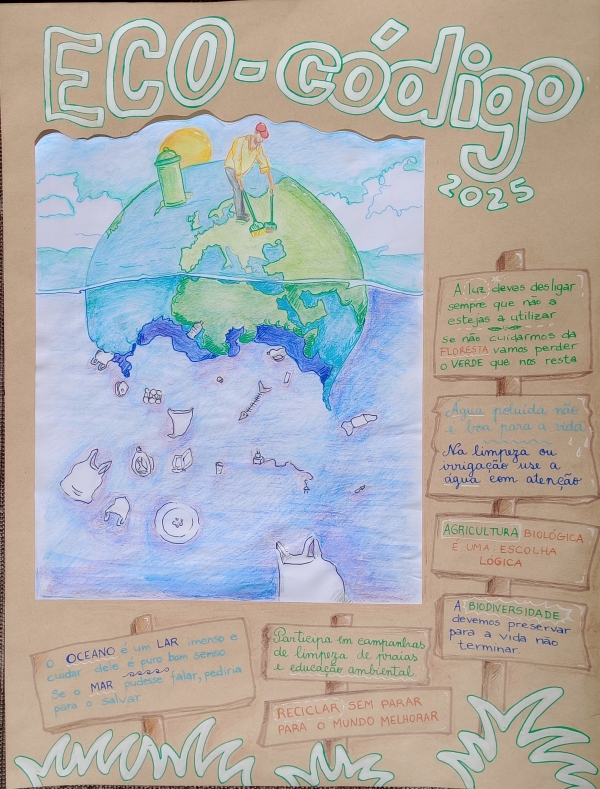 ECO-Código
2025
A luz deves desligar
sempre que não a
estejas a utilizar
se não cuidarmos da
FLORESTA vamos perder
o VERDE que nos resta
Água poluída não
é boa para a vida
Na limpeza ou
irrigação use a
água com atenção
AGRICULTURA BIOLÓGICA
É UMA ESCOLHA
LÓGICA
A BIODIVERSIDADE
devemos preservar
para a vida não
terminar.
O OCEANO é um LAR imenso e
cuidar dele é puro bom senso.
Se o MAR pudesse falar, pediria
para o salvar.
Participa em campanhas
de limpeza de praias
e educação ambiental
RECICLAR SEM PARAR
PARA O MUNDO MELHORAR